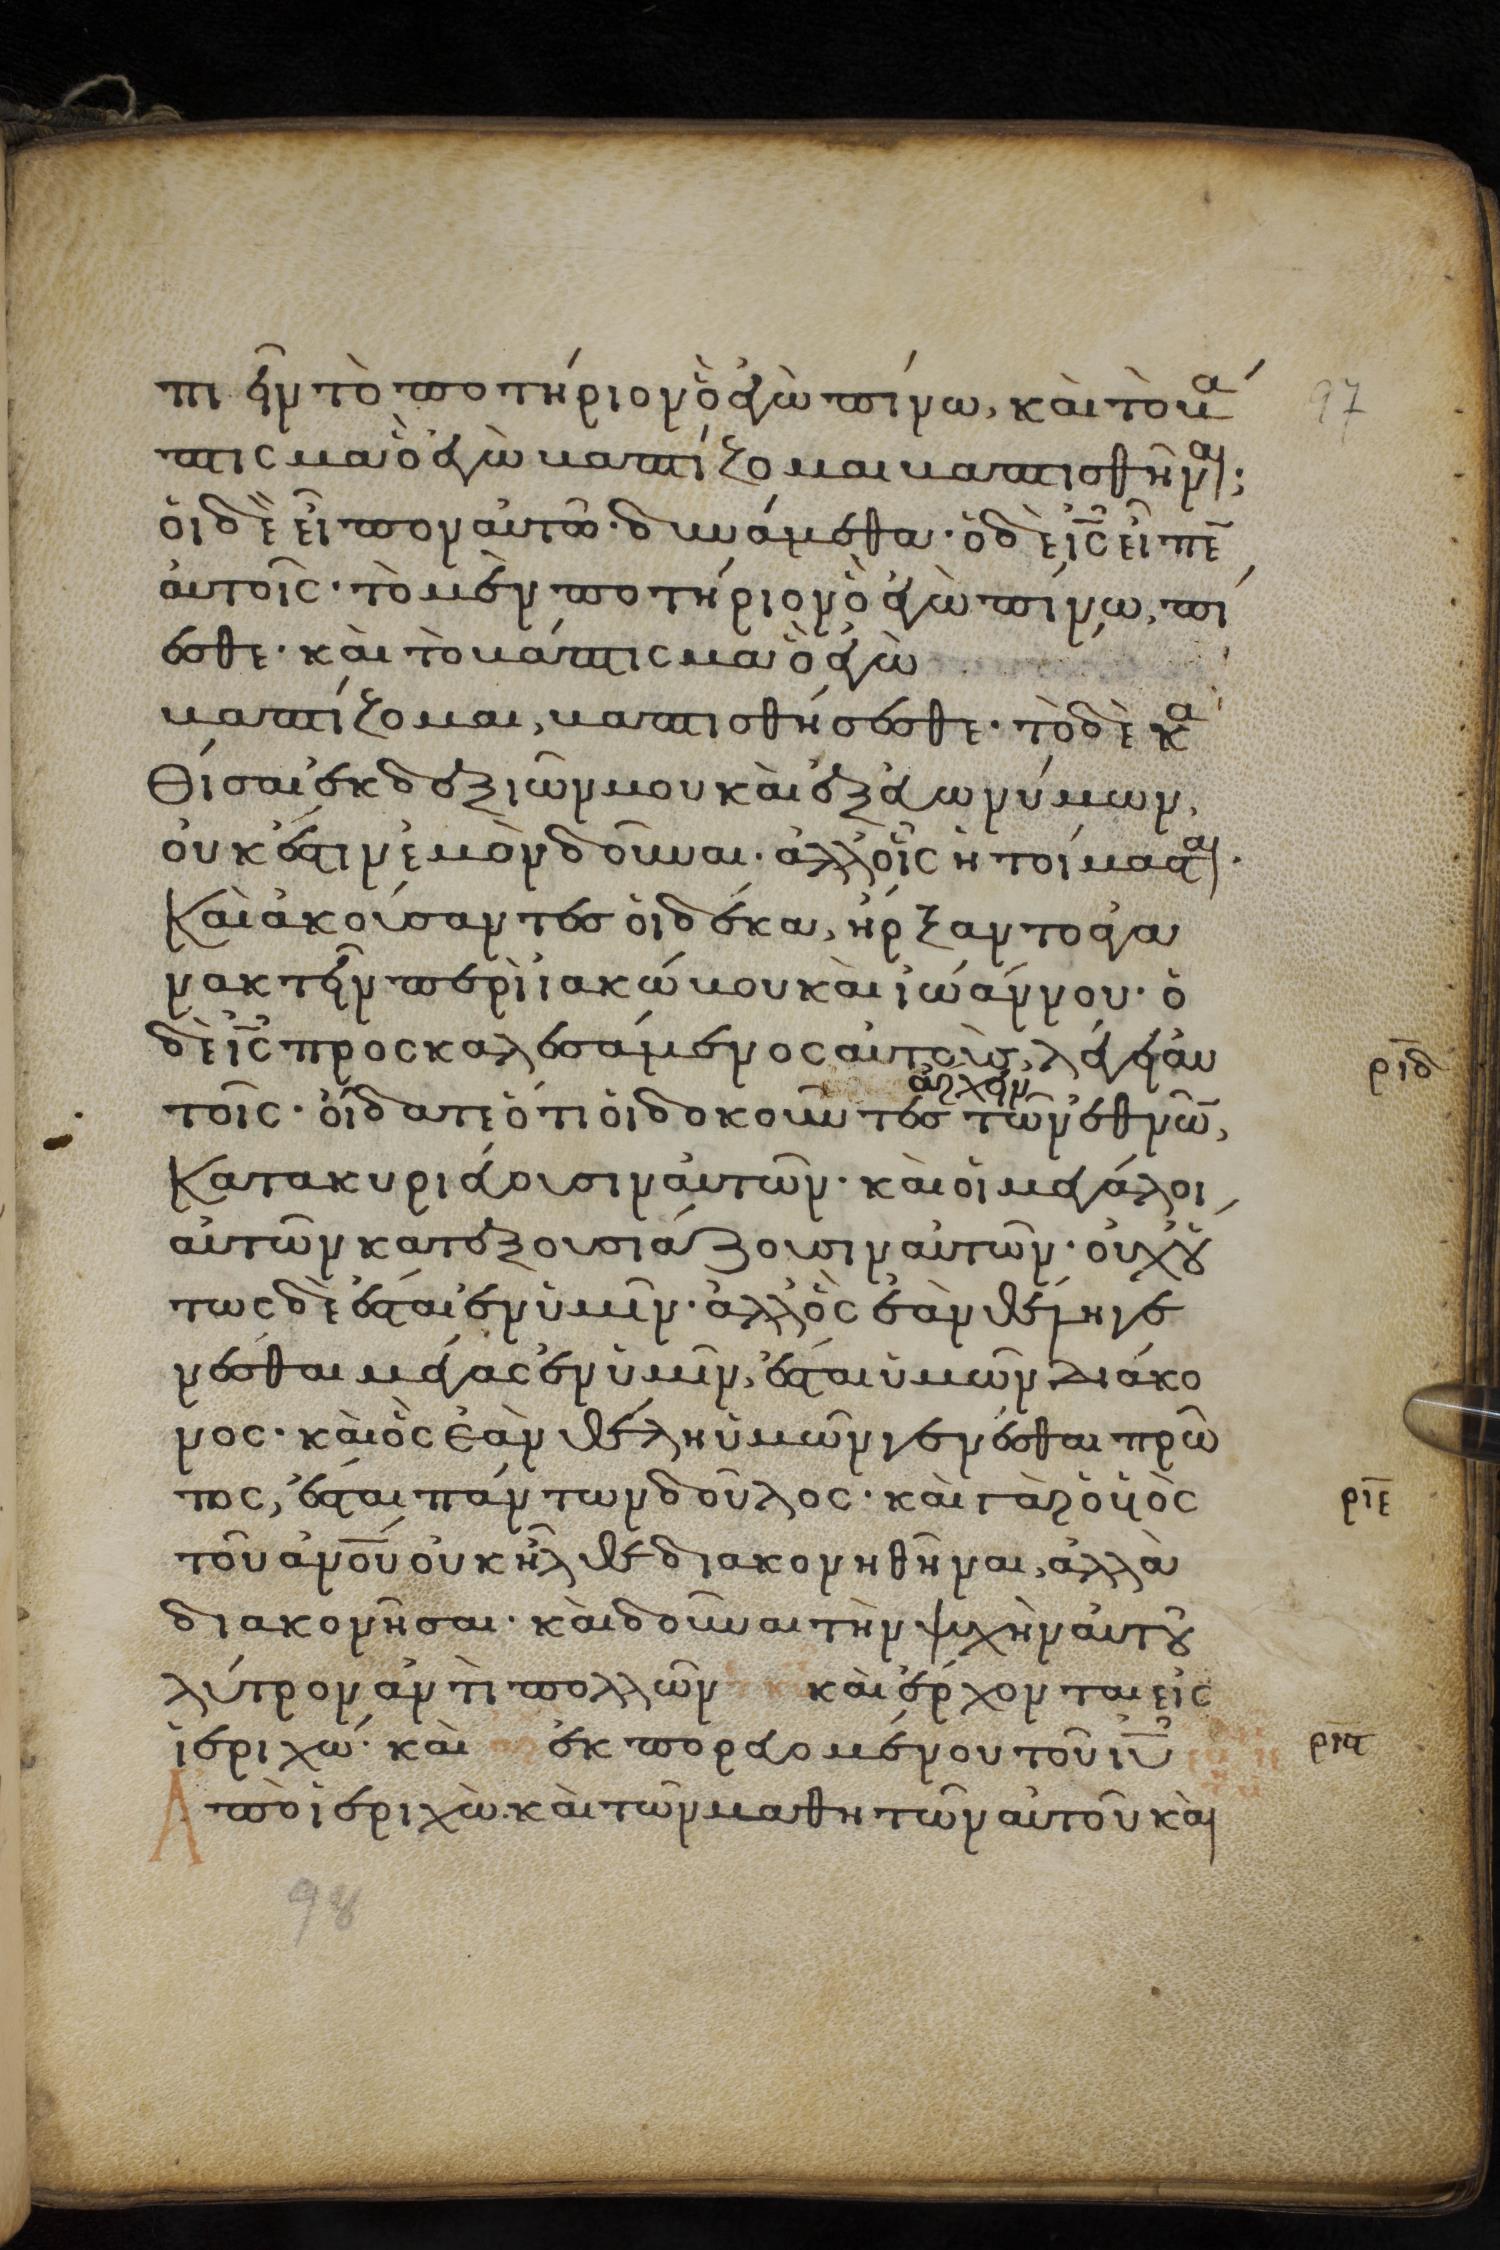 πιεῖν τὸ ποτήριον ὃ ἐγὼ πίνω, καὶ τὸ βά
πτισμα ὃ ἐγὼ βαπτίζομαι βαπτισθῆναι;
ὁι δὲ εἶπον αὐτῶ· δυνάμεθα· ὁ δὲ ι̅ς̅ εἶπε̅
αὐτοῖς· τὸ μὲν ποτήριον ὃ ἐγὼ πίνω, πί
εσθε· καὶ τὸ βάπτισμα ὃ ἐγὼ
βαπτίζομαι, βαπτισθήσεσθε· τὸ δὲ κα
θίσαι ἐκ δεξιῶν μου καὶ ἐξ εὐωνύμων,
οὐκ ἔστιν ἐμὸν δοῦναι· ἀλλ' οἷς ἡτοίμασται·
Καὶ ἀκούσαντες ὁι δέκα, ἤρξαντο ἀγα
νακτεῖν περὶ ἰακώβου καὶ ἰωάννου· ὁ
δὲ ι̅ς̅ προσκαλεσάμενος αὐτοὺς, λέγει αὐ
τοῖς· οἴδατε ὅτι ὁι δοκοῦντες ἄρχειν τῶν ἐθνῶ̅,
Κατακυριεύουσιν αὐτῶν· καὶ οἱ μεγάλοι
αὐτῶν κατεξουσιάζουσιν αὐτῶν· οὐχ οὕ
τως δὲ ἔσται ἐν ὑμῖν· ἀλλ' ὃς ἐὰν θέλη γε
νέσθαι μέγας ἐν ὑμῖν, ἔσται ὑμῶν διάκο
νος· καὶ ὃς ἐὰν θέλη ὑμῶν γενέσθαι πρῶ
τος, ἔσται πάντων δοῦλος· καὶ γὰρ ὁ υἱὸς
τοῦ α̅ν̅ο̅υ̅ οὐκ ἦλθε διακονηθῆναι, ἀλλὰ
διακονῆσαι· καὶ δοῦναι τὴν ψυχὴν αὐτοῦ
λύτρον ἀντὶ πολλῶν καὶ ἔρχονται εἰς
ἱεριχώ· καὶ ἐκπορευομένου τοῦ ι̅υ̅
Ἀπὸ ἱεριχὼ· καὶ τῶν μαθητῶν αὐτοῦ καὶ
ρ̅ι̅δ̅
ρ̅ι̅ε̅
ρ̅ι̅ς̅
97
98